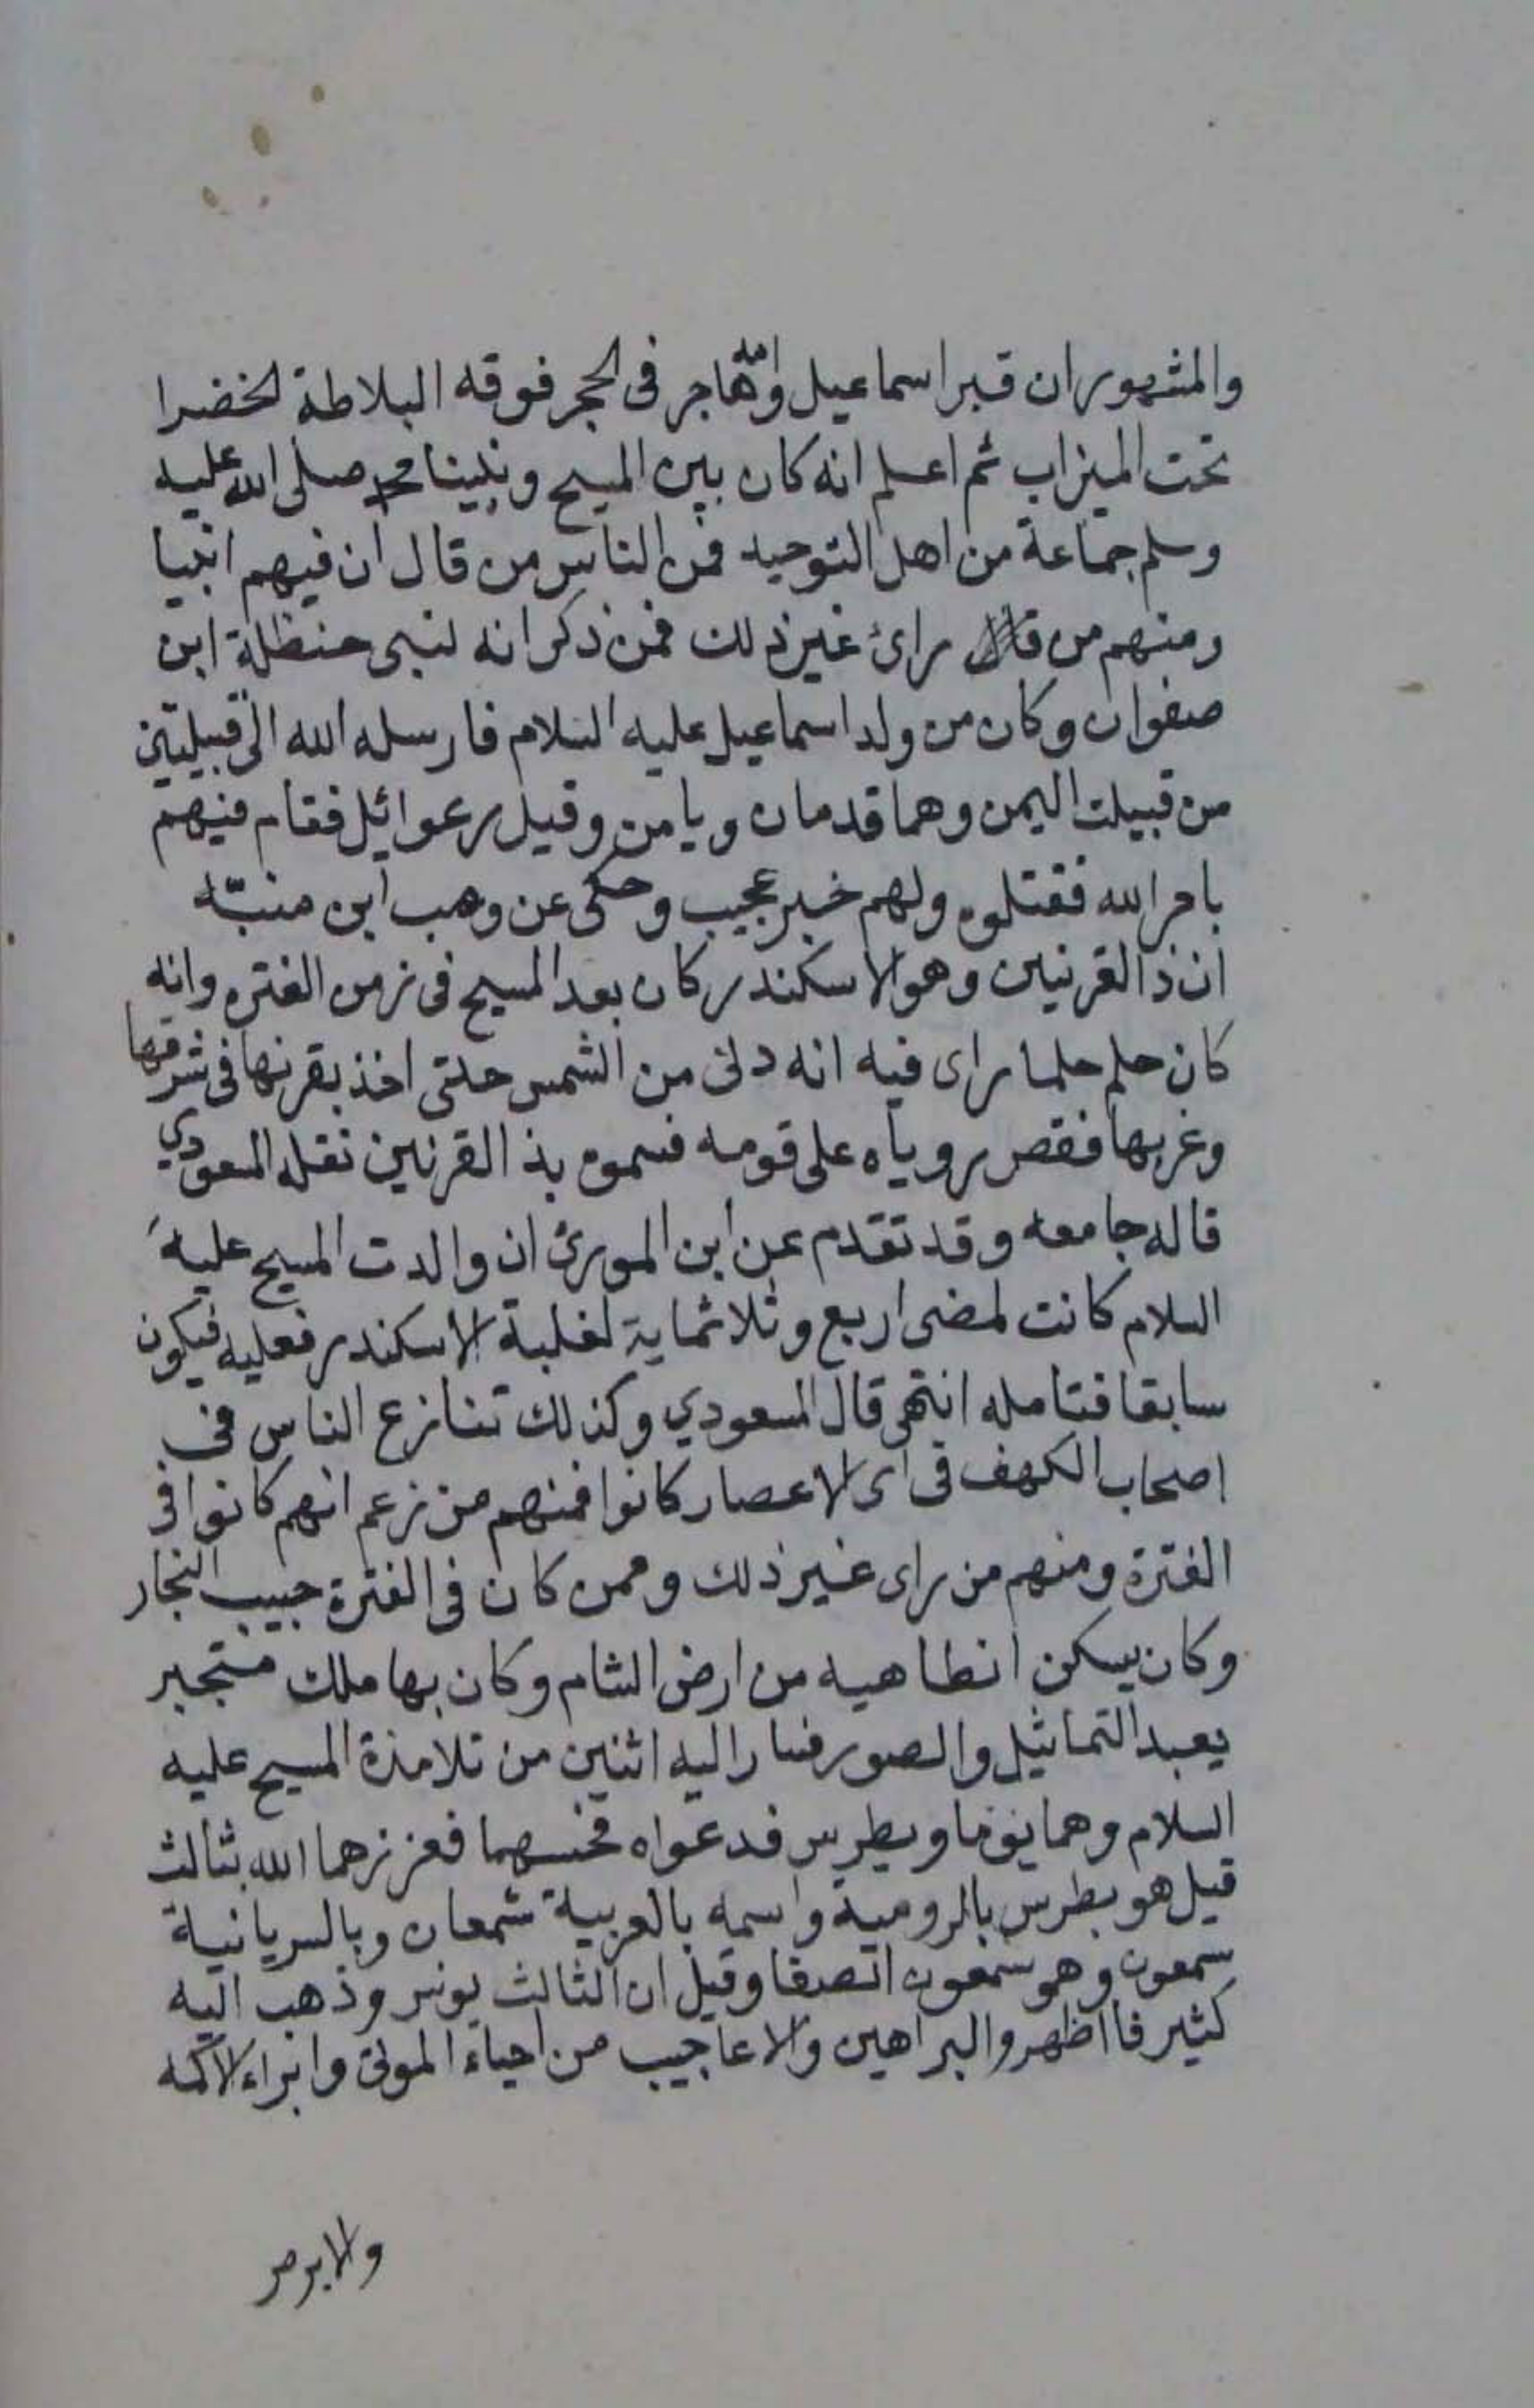 والمشهور ان قبر اسماعيل وامه هاجر فى الحجر فوقه البلاطة الخضرا
تحت الميزاب ثم اعلم انه كان بين المسيح ونبينا محمد صلى الله عليه
وسلم جماعة من اهل التوحيد فمن الناس من قال ان فيهم انبيا
ومنهم من راى غير ذلك فمن ذكر انه لنبى حنظلة ابن
صفوان وكان من ولد اسماعيل عليه السلام فارسله الله الى قبيلتين
من قبيلت اليمن وهما قدمان ويامن وقيل رعوائل فقام فيهم
بامر الله فقتلوه ولهم خبر عجيب وحكى عن وهب ابن منبّه
ان ذالقرنين وهو الاسكندر كان بعد المسيح فى زمن الفتره وانه
كان حلم حلما راى فيه انه دنى من الشمس حتى اخذ بقرنها فى شرقها
وغربها فقص روياه على قومه فسموه بذ القرنين نقله المسعودي
قاله جامعه وقد تقدم عن ابن ان والدت المسيح عليه
السلام كانت لمضى اربع وثلاثماية لغلبة الاسكندر فعليه فيكون
سابقا فتامله انتهى قال المسعودي وكذلك تنازع الناس فى
اصحاب الكهف فى اى الاعصار كانوا فمنهم من زعم انهم كانوا فى
الفترة ومنهم من راى غير ذلك وممن كان فى الفترة حبيب النجار
وكان يسكن انطاهيه من ارض الشام وكان بها ملك متجبر
يعبد التماثيل والصور فسار اليه اثنين من تلامذة المسيح عليه
السلام وهما يوما وبطرس فدعواه فحبسهما فعززهما الله بثالث
قيل هو بطرس بالرومية واسمه بالعربية شمعان وبالسريانية
سمعون وهو شمعون الصفا وقيل ان الثالث يونس وذهب اليه
كثير فااظهروا البراهين والاعاجيب من احياء الموتى وابراء الاكمه
والابرص